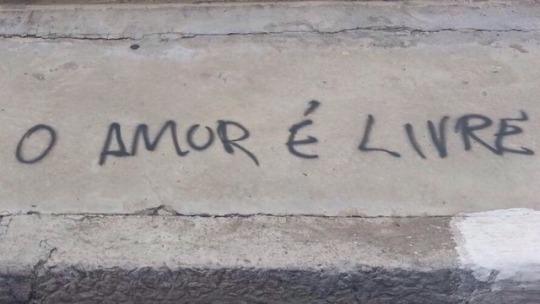 O AMOR É LIVRE